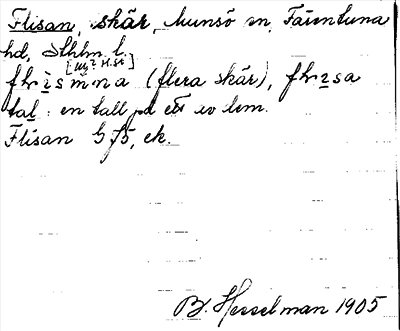 Flisan, skär, Munsö sn, Färentuna
hd, Sthlm l.
flısmna (flera skär), flısa
tal: en tall på ett av dem.
Flisan G 75, ek.
B. Hesselman 1905